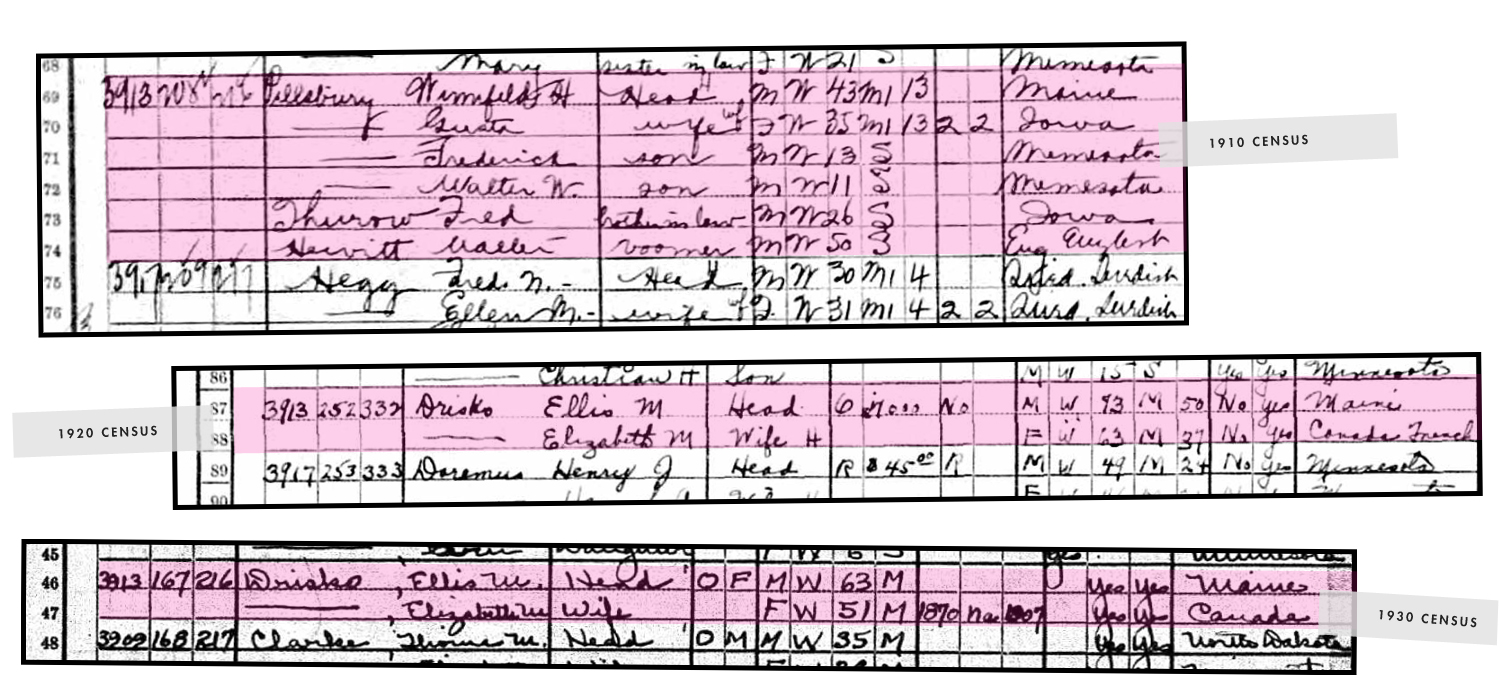 68 Mary sister in law F W 21 S Minnesota
69 3913 208 Pillsbury Winnfield H Head M W 43 M1 13 Maine
1910 CENSUS
70 —— Gusta wife F W 35 M1 13 2 2 Iowa
71 —— Frederick son M W 13 S Minnesota
72 —— Walter W. son M W 11 S Minnesota
73 Thurow Fred brother in law M W 26 S Iowa
74 Hewitt Walter roomer M W 50 S Eng English
75 391 209 Hegg Fred N. - Head M W 30 M1 4
76 —— Ellen M. - wife F W 31 M1 4 2 2
86 —— Christian H Son M W 15 S Yes Yes Minnesota
87 3913 252 332 Drisko Ellis M Head O No M W 93 M 50 No Yes Maine
1920 CENSUS
88 —— Elizabeth M Wife H F W 63 M 37 No Yes Canada French
89 3917 253 333 Doremus Henry J Head R $45.00 R M W 49 M 24 No Yes Minnesota
90
45 Daughter F W 6 S Yes Minnesota
46 3913 167 216 Drisko, Ellis M. Head O F M W 63 M Yes Yes Maine
47 ——, Elizabeth M Wife F W 51 M 1870 Na 1907 Yes Yes Canada
1930 CENSUS
48 3909 168 217 Clarke, Thomas M. Head O M M W 35 M Yes Yes North Dakota